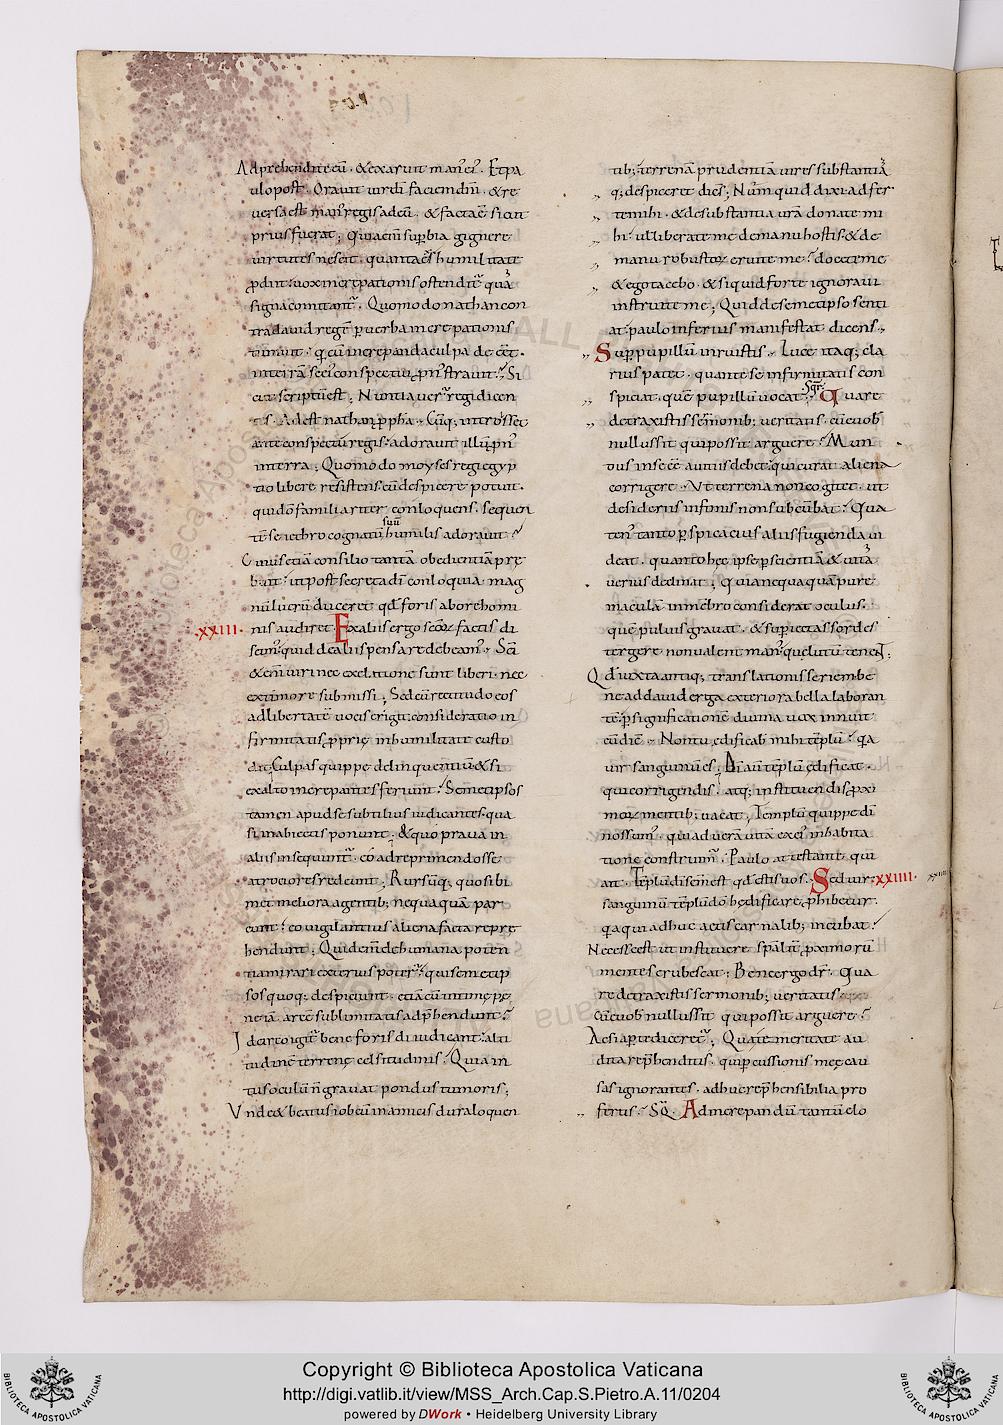 Adprehendite eū · & exaruit man' ei' · Et pa
ulo post · Orauit uir dī faciem dnī · & re
uersa est man' regis ad eū · & facta ē sicut
prius fuerat ; Quia enī sup̄bia gignere
uirtutes nescit · quanta ēx humilitate
p̄dit uox increpationis ostendit' quā
signa comitant' · Quomodo nathan con
tra dauid regē p̄ uerba increpationis
tumuit · q̄ cū increpanda culpa deēet ·
in terrā sese in conspectu ei' p̄nstrauit ? Si
cut scriptū est ; Nuntiauer' regi dicen
tes · Adest nathan p̄pha · Cūq; introisset
ante conspectū regis · adorauit illū p̄n'
in terra ; Quomodo moyses regi egyp
tio libere resistens eū despicere potuit ·
qui dō familiariter conloquens · sequen
suū
tē se iethro cognatū humilis adorauit ?
Cuius etiā consilio tantā obedientiā pre
buit · ut post secreta dī conloquia · mag
nū lucrū duceret qđ foris ab ore homi
·xxiii· nis audiret · Ex aliis ergo scōꝝ factis di
scim' quid de aliis pensare debeam' · Sc̄i
& enī uiri nec ex elatione sunt liberi · nec
ex timore submissi ; Sed cū rectitudo eos
ad libertatē uocis erigit · consideratio in
firmitatis p̄prię in humilitate custo
dit ; Culpas quippe delinquentiū & si
ex alto increpantes feriunt · Semetipsos
tamen apud se subtilius iudicantes · qua
si in abiectis ponunt · & quo praua in
aliis insequunt' · eo ad reprimendos se
atrociores redeunt ; Rursūq; quo sibi
met meliora agentib; nequaquā par
cunt · eo uigilantius aliena facta repre
hendunt ; Quid enī de humana poten
tia mirari exterius poter' · qui semetip
sos quoq; despiciunt · etiā cū intimę pe
ne iā artē sublimitatis adp̄hendunt ?
Idcirco igit' bene foris diiudicant alti
tudinē terrenę celsitudinis · Quia in
tus oculū n̄ grauat pondus tumoris ;
Vnde & beatus iob cū in amicis dura loquen
tib; terrenā prudentiā uires substantiā
q; despiceret dicēs ; Nūmquid dixi adfer
te mihi · & de substantia urā donate mi
hi · uł liberate me de manu hostis · & de
manu robustoꝝ eruite me ? docete me
& ego tacebo · & si quid forte ignoraui
instruite me ; Quid de semetipso senti
at paulo inferius manifestat dicens ·
Sup̄ pupillū inruistis · Luce itaq; cla
rius patet · quante se infirmitatis con
Sqr̄
spiciat · quē pupillū uocat ; Quare
detraxistis sermonib; ueritatis · cū e uob
nullus sit qui possit arguere ? Mun
dus in se eē a uitiis debet · qui curat aliena
corrigere · Vt terrena non cogitet · ut
desideriis infimis non subcūbat · Qua
ten' tanto p̄spicacius aliis fugienda ui
deat · quanto hęc ipse p̄ scientiā & uitā
uerius declinat ; Quia nequaquā pure
maculā in mēbro considerat oculus ·
quē puluis grauat · & sup̄iectas sordes
tergere non ualent man' que lutū tenēt ;
Qđ iuxta antiq; translationis seriem be
ne ad dauid erga exteriora bella laboran
tē · p̄ significationē diuina uox innuit
cū diē · Non tu ędificab mihi tēplū · q̄a
uir sanguinū es ; Dī aūt tēplū ędificat ·
qui corrigendis · atq; instituendis p̄xi
moꝝ mentib; uacat ; Templū quippe dī
nos sum' · qui ad uerā uitā ex ei' inhabita
tione construim' · Paulo attestante qui
ait · Tēplū dī scm̄ est qđ estis uos · Sed uir ·xxiiii·
sanguinū tēplū dō hędificare p̄hibetur ·
q̄a qui adhuc actis carnalib; incubat ?
Necesse est ut instituere sp̄aliť p̄ximorū
mentes erubescat ; Bene ergo dr̄ · Qua
re detraxistis sermonib; ueritatis
cū e uob nullus sit qui possit arguere ?
Ac si ap̄te diceret' ; Qua temeritate au
dita rep̄henditis · qui p̄cussionis meę cau
sas ignorantes · adhuc rep̄hensibilia pro
fertis · Sqr̄ · Ad increpandū tantū elo
Copyright © Biblioteca Apostolica Vaticana
http://digi.vatlib.it/view/MSS_Arch.Cap.S.Pietro.A.11/0204
powered by DWork • Heidelberg University Library
BIBLIOTECA APOSTOLICA VATICANA
BIBLIOTECA APOSTOLICA VATICANA